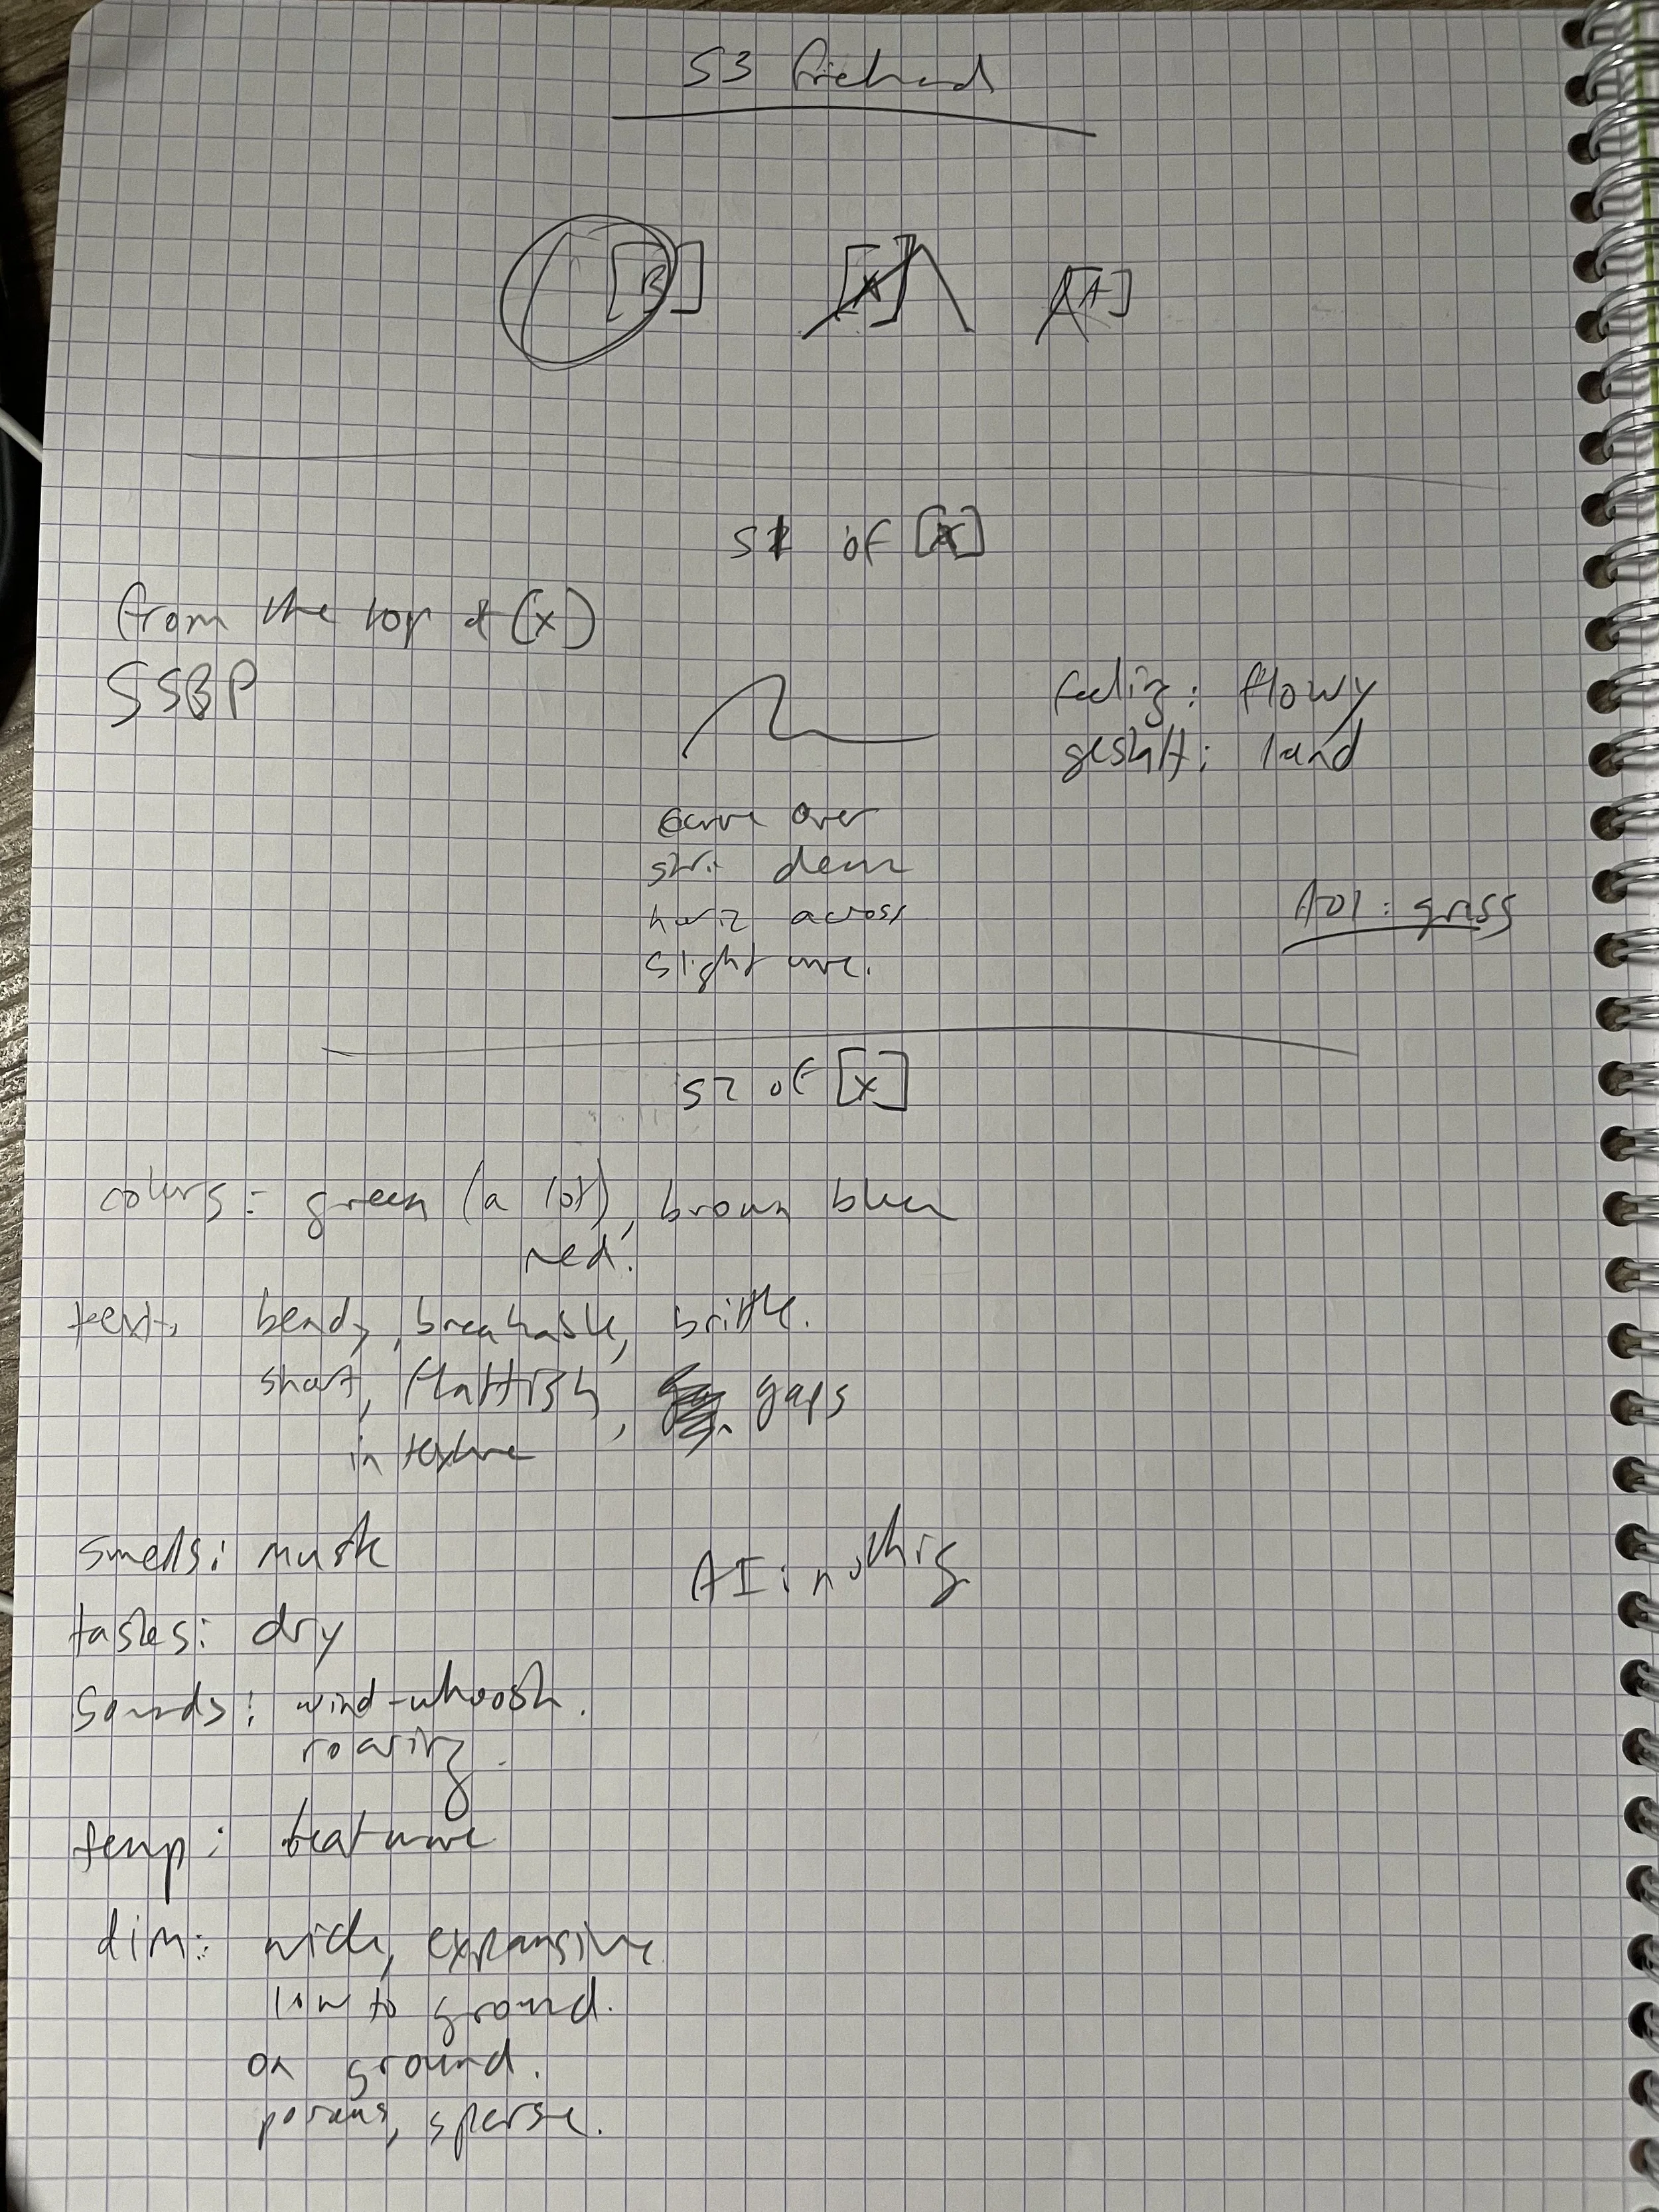 S3
[B] [X] [A]
S1 of [X]
from the top of (x)
SSBP
feeling: flowy
gestalt: land
curve over
down
horiz across
slight
AOL: grass
S2 of [X]
colors: green (a lot), brown
red.
text. bendy, breakable, brittle.
short, flattish, gaps
in texture
smells: musk
AI: nothing
tastes: dry
sounds: wind-whoosh.
roaring.
temp:
dim: wide, expansive
low to ground.
on ground.
porous, sparse.